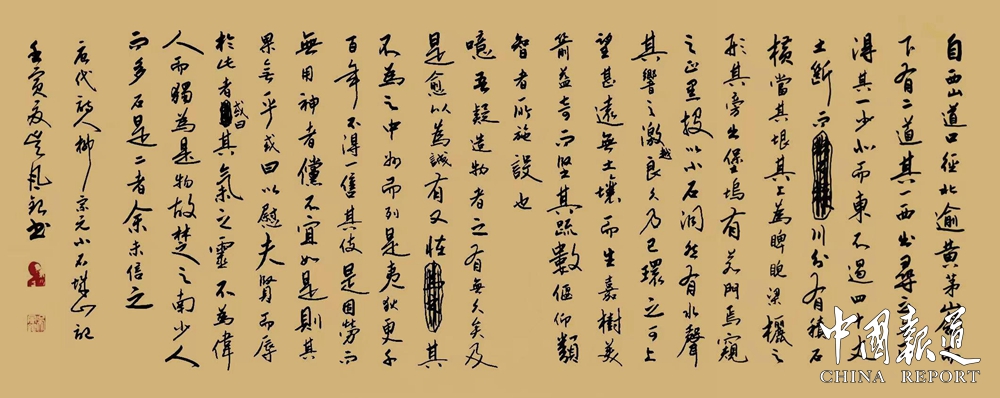 自西山道口經北逾黃茅嶺而
下有二道其一西出尋之無
淂其一少北而東不過四十丈
土斷而川分有積石
橫當其垠其上為睥睨梁欐之
形其旁出堡塢有若門焉窺
之正黑投以小石洞然有水聲
其響之激越良久乃已環之可上
望甚遠無土壤而生嘉樹美
箭益奇而堅其疏數偃仰類
智者所施設也
噫吾疑造物者之有無久矣及
是愈以為誠有又怪其
不為之中州而列是夷狄更千
百年不得一售其伎是固勞而
無用神者儻不宜如是則其
果無乎或曰以慰夫賢而辱
於此者或曰其氣之靈不為偉
人而獨為是物故楚之南少人
而多石是二者余未信之
唐代詩人柳宗元小石城山記
壬寅夏書
中國報道
CHINA REPORT